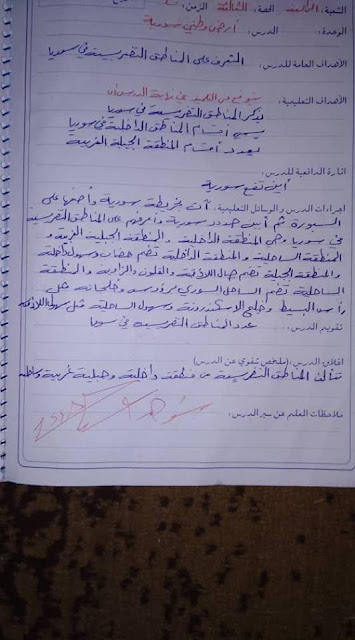 الشعبة: الحصة: الثالثة الزمن:
الوحدة: الدرس: أرض وطني سورية
الأهداف العامة للدرس: التعرف على المناطق التضريسية في سوريا
الأهداف التعليمية: يتوقع من التلميذ في نهاية الدرس أن
يذكر المناطق التضريسية في سوريا
يسمي أقسام المناطق الداخلية في سوريا
يعدد أقسام المنطقة الجبلية الغربية
اثارة الدافعية للدرس:
أين تقع سورية
اجراءات الدرس والوسائل التعليمية: خريطة سورية وأضعها على
السبورة ثم أبين حدود سورية وأعرفهم على المناطق التضريسية
في سوريا وهي المنطقة الداخلية والمنطقة الجبلية الغربية و
المنطقة الساحلية والمنطقة الداخلية تضم هضاب وسهول داخلية
والمنطقة الجبلية تضم جبال اللاذقية والقلمون والزاوية والمنطقة
الساحلية تضم الساحل السوري برؤوسه وخلجانه مثل
رأس البسيط وخليج الاسكندرونة وسهول الساحلية مثل سهل اللاذقية
تقويم الدرس: عدد المناطق التضريسية في سوريا
اغلاق الدرس: (ملخص شفوي عن الدرس)
تتألف المناطق التضريسية من منطقة داخلية وجبلية غربية وساحلية
ملاحظات المعلم عن سير الدرس: